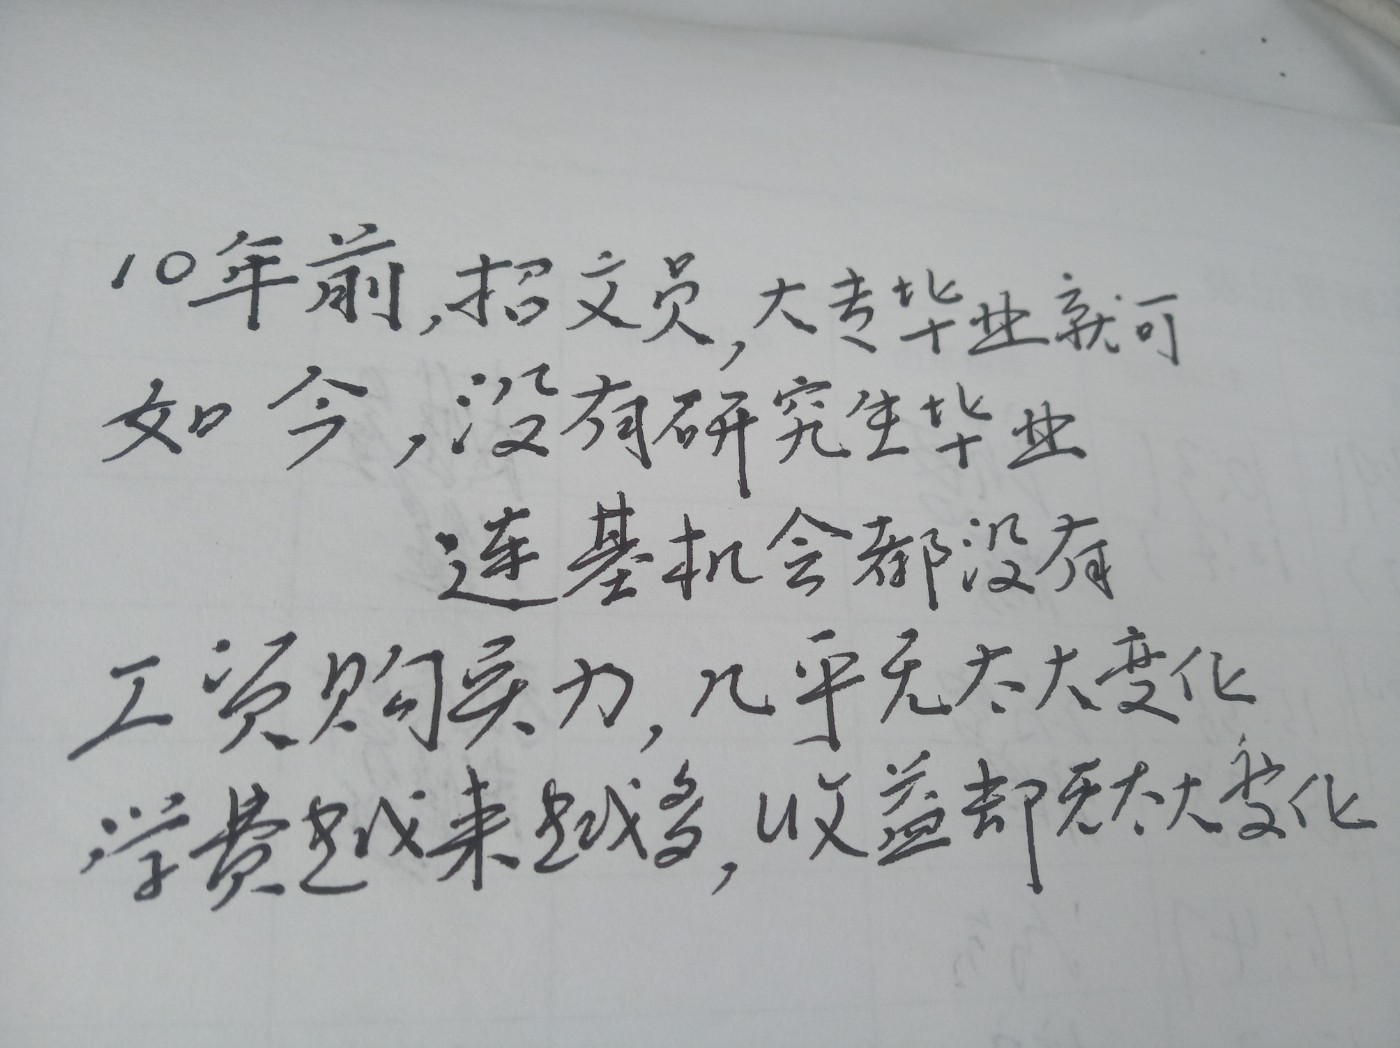 10年前,招文员,大专毕业就可
如今,没有研究生毕业
连基机会都没有
工资购买力,几乎无太大变化
学费越来越多,收益却无太大变化